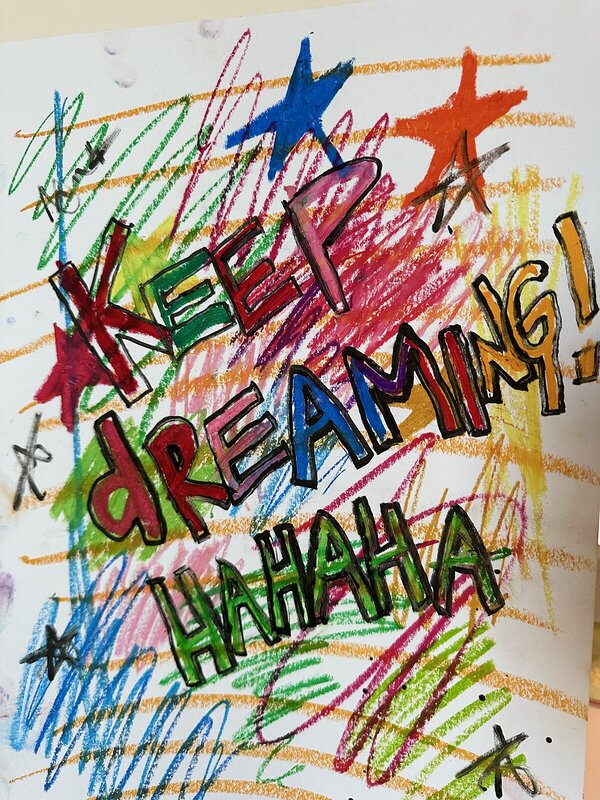 KEEP
dREAMING!
HAHAHA